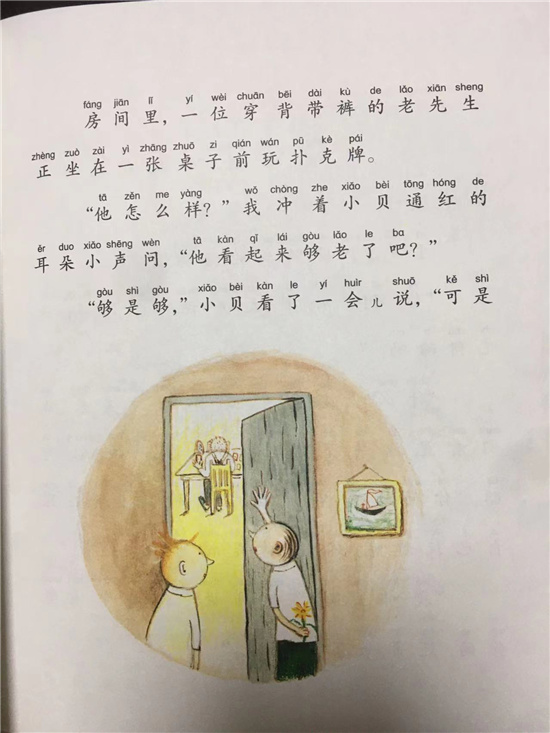 fáng jiān lǐ yí wèi chuān bēi dài kù de lǎo xiān sheng
房间里，一位穿背带裤的老先生
zhèng zuò zài yì zhāng zhuō zi qián wán pū kè pái
正坐在一张桌子前玩扑克牌。
tā zěn me yàng wǒ chòng zhe xiǎo bèi tōng hóng de
“他怎么样？”我冲着小贝通红的
ěr duo xiǎo shēng wèn tā kàn qǐ lái gòu lǎo le ba
耳朵小声问，“他看起来够老了吧？”
gòu shì gòu xiǎo bèi kàn le yí huìr shuō kě shì
“够是够，”小贝看了一会儿说，“可是